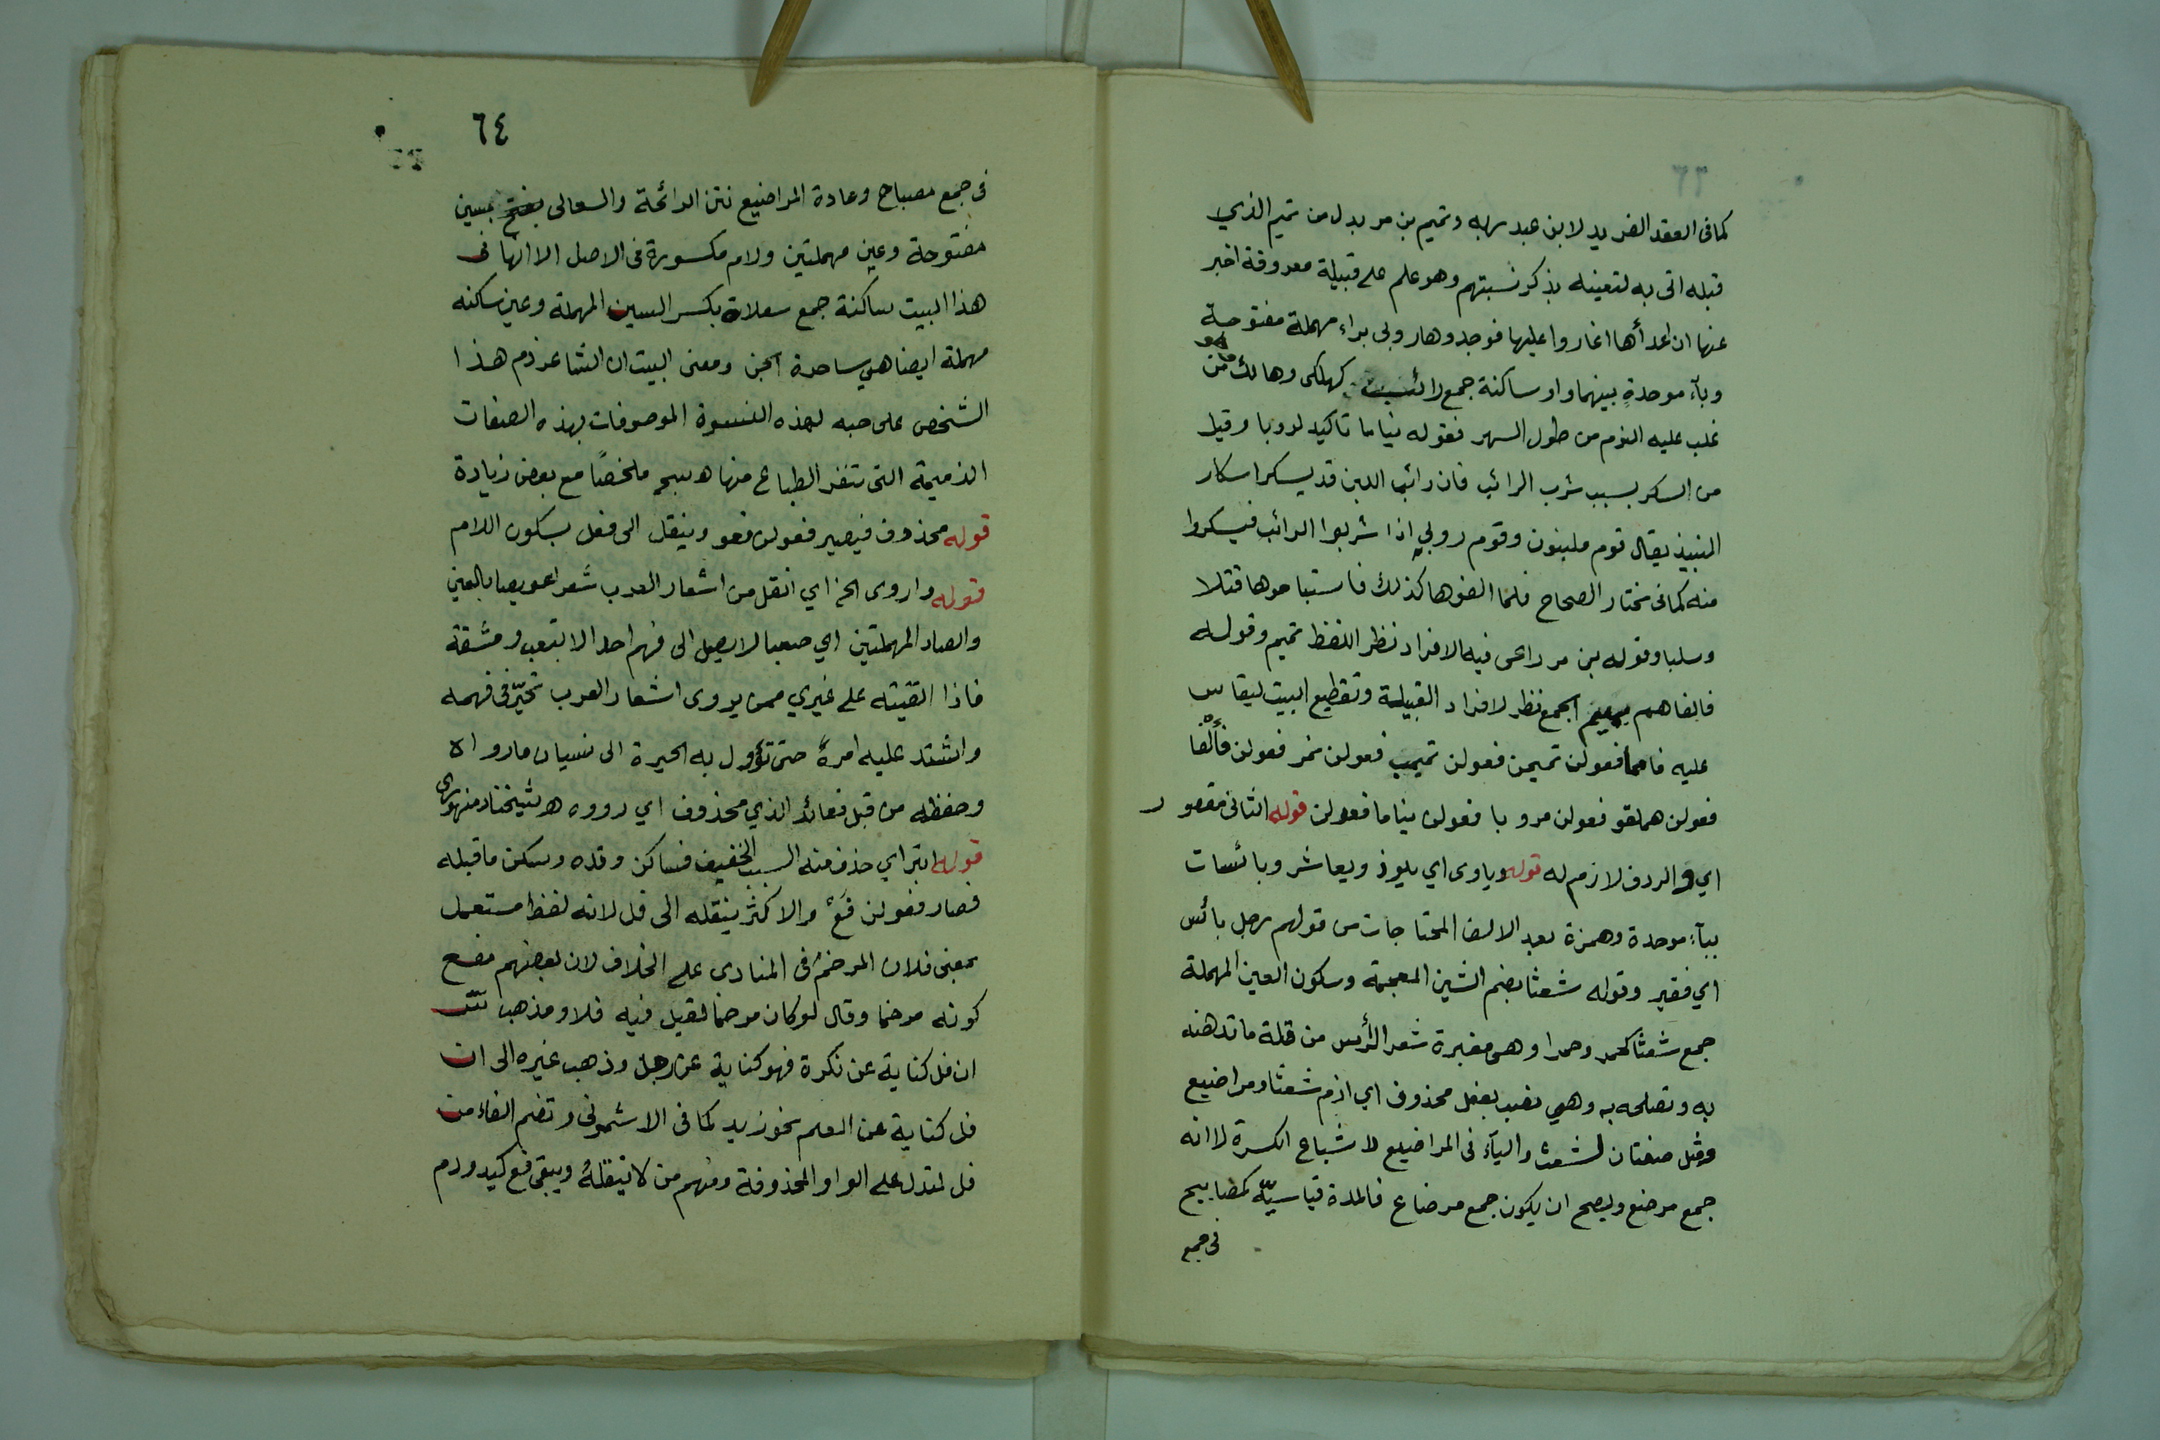 كما فى العقد الفريد لابن عبد ربه وتميم بن مر بدل من تميم الذي
قبله اتى به لتعينه بذكر نسبتهم وهو علم على قبيلة معروفة اخبر
عنها ان اعدأها اغاروا عليها فوجدوها روبى براء مهملة مفتوحة
وبآء موحدة بينهما واو ساكنة جمع رائب كهلكى وهالك من
غلب عليه النوم من طول السهر فقوله نياما تاكيد لروبا وقيل
من السكر بسبب شرب الرائب فان رائب اللبن قد يسكر اسكار
النبيذ يقال قوم ملبنون وقوم روبي اذا شربوا الرائب فيسكروا
منه كما فى مختار الصحاح فلما الفوها كذلك فاستباحوها قتلا
وسلبا وقوله بن مر راعى فيه الافراد نظر اللفظ تميم وقوله
فالفاهم بميم الجمع نظر لافراد القبيلة وتقطيع البيت ليقاس
عليه فاهما فعولن تميمن فعولن تميمب فعولن نمر فعولن فألفا
فعولن هملقو فعولن مروبا فعولن نياما فعولن قوله الثانى مقصور
اي والردف لازم له قوله وياوى اي يلوذ ويعاشر وبائسات
ببآء موحدة وهمزة بعد الالف المحتاجات من قولهم رجل بائس
اي فقير وقوله شعثا بضم الشين المعجمة وسكون العين المهملة
جمع شعثا كحمر وحمرا وهى مغبرة شعر الرأس من قلة ما تدهنه
به وتصلحه به وهي نصب بفعل محذوف اي اذم شعثا ومراضيع
ومثل صفتان لشعث والياء فى المراضيع لاشباع الكسرة لانه
جمع مرضع ويصح ان يكون جمع مرضاع فالمدة قياسيّة كمصابيح
فى جمع
٦٤
فى جمع مصباح وعادة المراضيع نتن الرائحة والسعالى بسين
مفتوحة وعين مهملتين ولام مكسورة فى الاصل الا انها فى
هذا البيت ساكنة جمع سعلاة بكسر السين المهملة وعين ساكنه
مهملة ايضا هي ساحرة الجن ومعنى البيت ان الشاعر ذم هذا
الشخص على حبه لهذه النسوة الموصوفات بهذه الصفات
الذميمة التى تنفر الطباع منها هـ سجر ملخصًا مع بعض زيادة
قوله محذوف فيصير فعولن فعو وينقل الى فعل بسكون اللام
قوله واروى الخ اي انقل من اشعار العرب شعرا عويصا بالعين
والصاد المهملتين اي صعبا لا يصل الى فهم احد الا بتعب ومشقة
فاذا القيته على غيري ممن يروى اشعار العرب تحيّر فى فهمه
واشتد عليه امره حتى تؤول به الحيرة الى نسيان ما رواه
وحفظه من قبل فعائد الذي محذوف اي رووه هـ شيخنا دمنهورى
قوله ابتراي حذف منه السبب الخفيف فساكن وتده وسكن ما قبله
فصار فعولن فَعْ والاكثر ينقله الى فل لانه لفظ مستعمل
بمعنى فلان المرخم فى المنادى على الخلاف لان بعضهم منع
كونه مرخما وقال لو كان مرخما لقيل فيه فلا ومذهب سّ
ان فل كناية عن نكرة فهو كناية عن رجل وذهب غيره الى ان
فل كناية عن العلم نحو زيد كما فى الاشمونى وتضم الفاء من
فل لتدل على الواو المحذوفة ومنهم من لا ينقله ويبقى فع كيد ودم